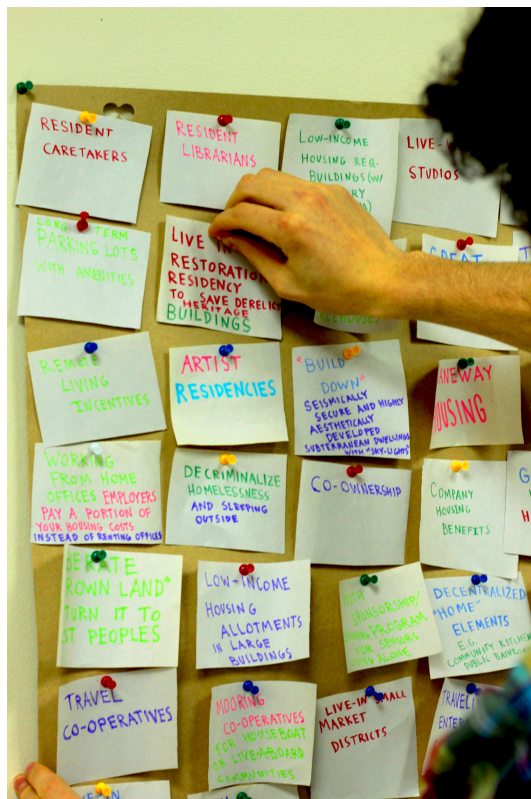 RESIDENT
CARETAKERS
RESIDENT
LIBRARIANS
LOW-INCOME
HOUSING REQ.
BUILDINGS (W/
LIVE-
STUDIOS
LONG TERM
PARKING LOTS
WITH AMENITIES
LIVE IN
RESTORATION
RESIDENCY
TO SAVE DERELICT
HERITAGE
BUILDINGS
GREAT
REMOTE
LIVING
INCENTIVES
ARTIST
RESIDENCIES
"BUILD
DOWN"
SEISMICALLY
SECURE AND HIGHLY
AESTHETICALLY
DEVELOPED
SUBTERRANEAN DWELLINGS
WITH "SKY-LIGHTS"
ANEWAY
OUSING
WORKING
FROM HOME
OFFICES EMPLOYERS
PAY A PORTION OF
YOUR HOUSING COSTS
INSTEAD OF RENTING OFFICES
DECRIMINALIZE
HOMELESSNESS
AND SLEEPING
OUTSIDE
CO-OWNERSHIP
COMPANY
HOUSING
BENEFITS
ERATE
ROWN LAND"
TURN IT TO
ST PEOPLES
LOW-INCOME
HOUSING
ALLOTMENTS
IN LARGE
BUILDINGS
SPONSORSHIP/
PROGRAM
FOR SENIORS
LIVING ALONE
DECENTRALIZED
"HOME"
ELEMENTS
E.G.
COMMUNITY KITCHEN
PUBLIC
TRAVEL
CO-OPERATIVES
MOORING
CO-OPERATIVES
FOR HOUSEBOAT
OR LIVE-ABOARD
COMMUNITIES
LIVE-IN SMALL
MARKET
DISTRICTS
TRAVELI
ENTER